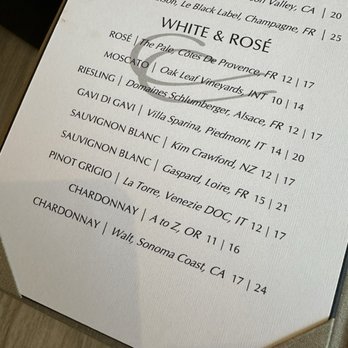 on Valley, CA | 20
son, Le Black Label, Champagne, FR | 25
WHITE & ROSÉ
ROSÉ | The Pale, Côtes De Provence, FR 12 | 17
MOSCATO | Oak Leaf Vineyards, INT 10 | 14
RIESLING | Domaines Schlumberger, Alsace, FR 12 | 17
GAVI DI GAVI | Villa Sparina, Piedmont, IT 14 | 20
SAUVIGNON BLANC | Kim Crawford, NZ 12 | 17
SAUVIGNON BLANC | Gaspard, Loire, FR 15 | 21
PINOT GRIGIO | La Torre, Venezie DOC, IT 12 | 17
CHARDONNAY | A to Z, OR 11 | 16
CHARDONNAY | Walt, Sonoma Coast, CA 17 | 24